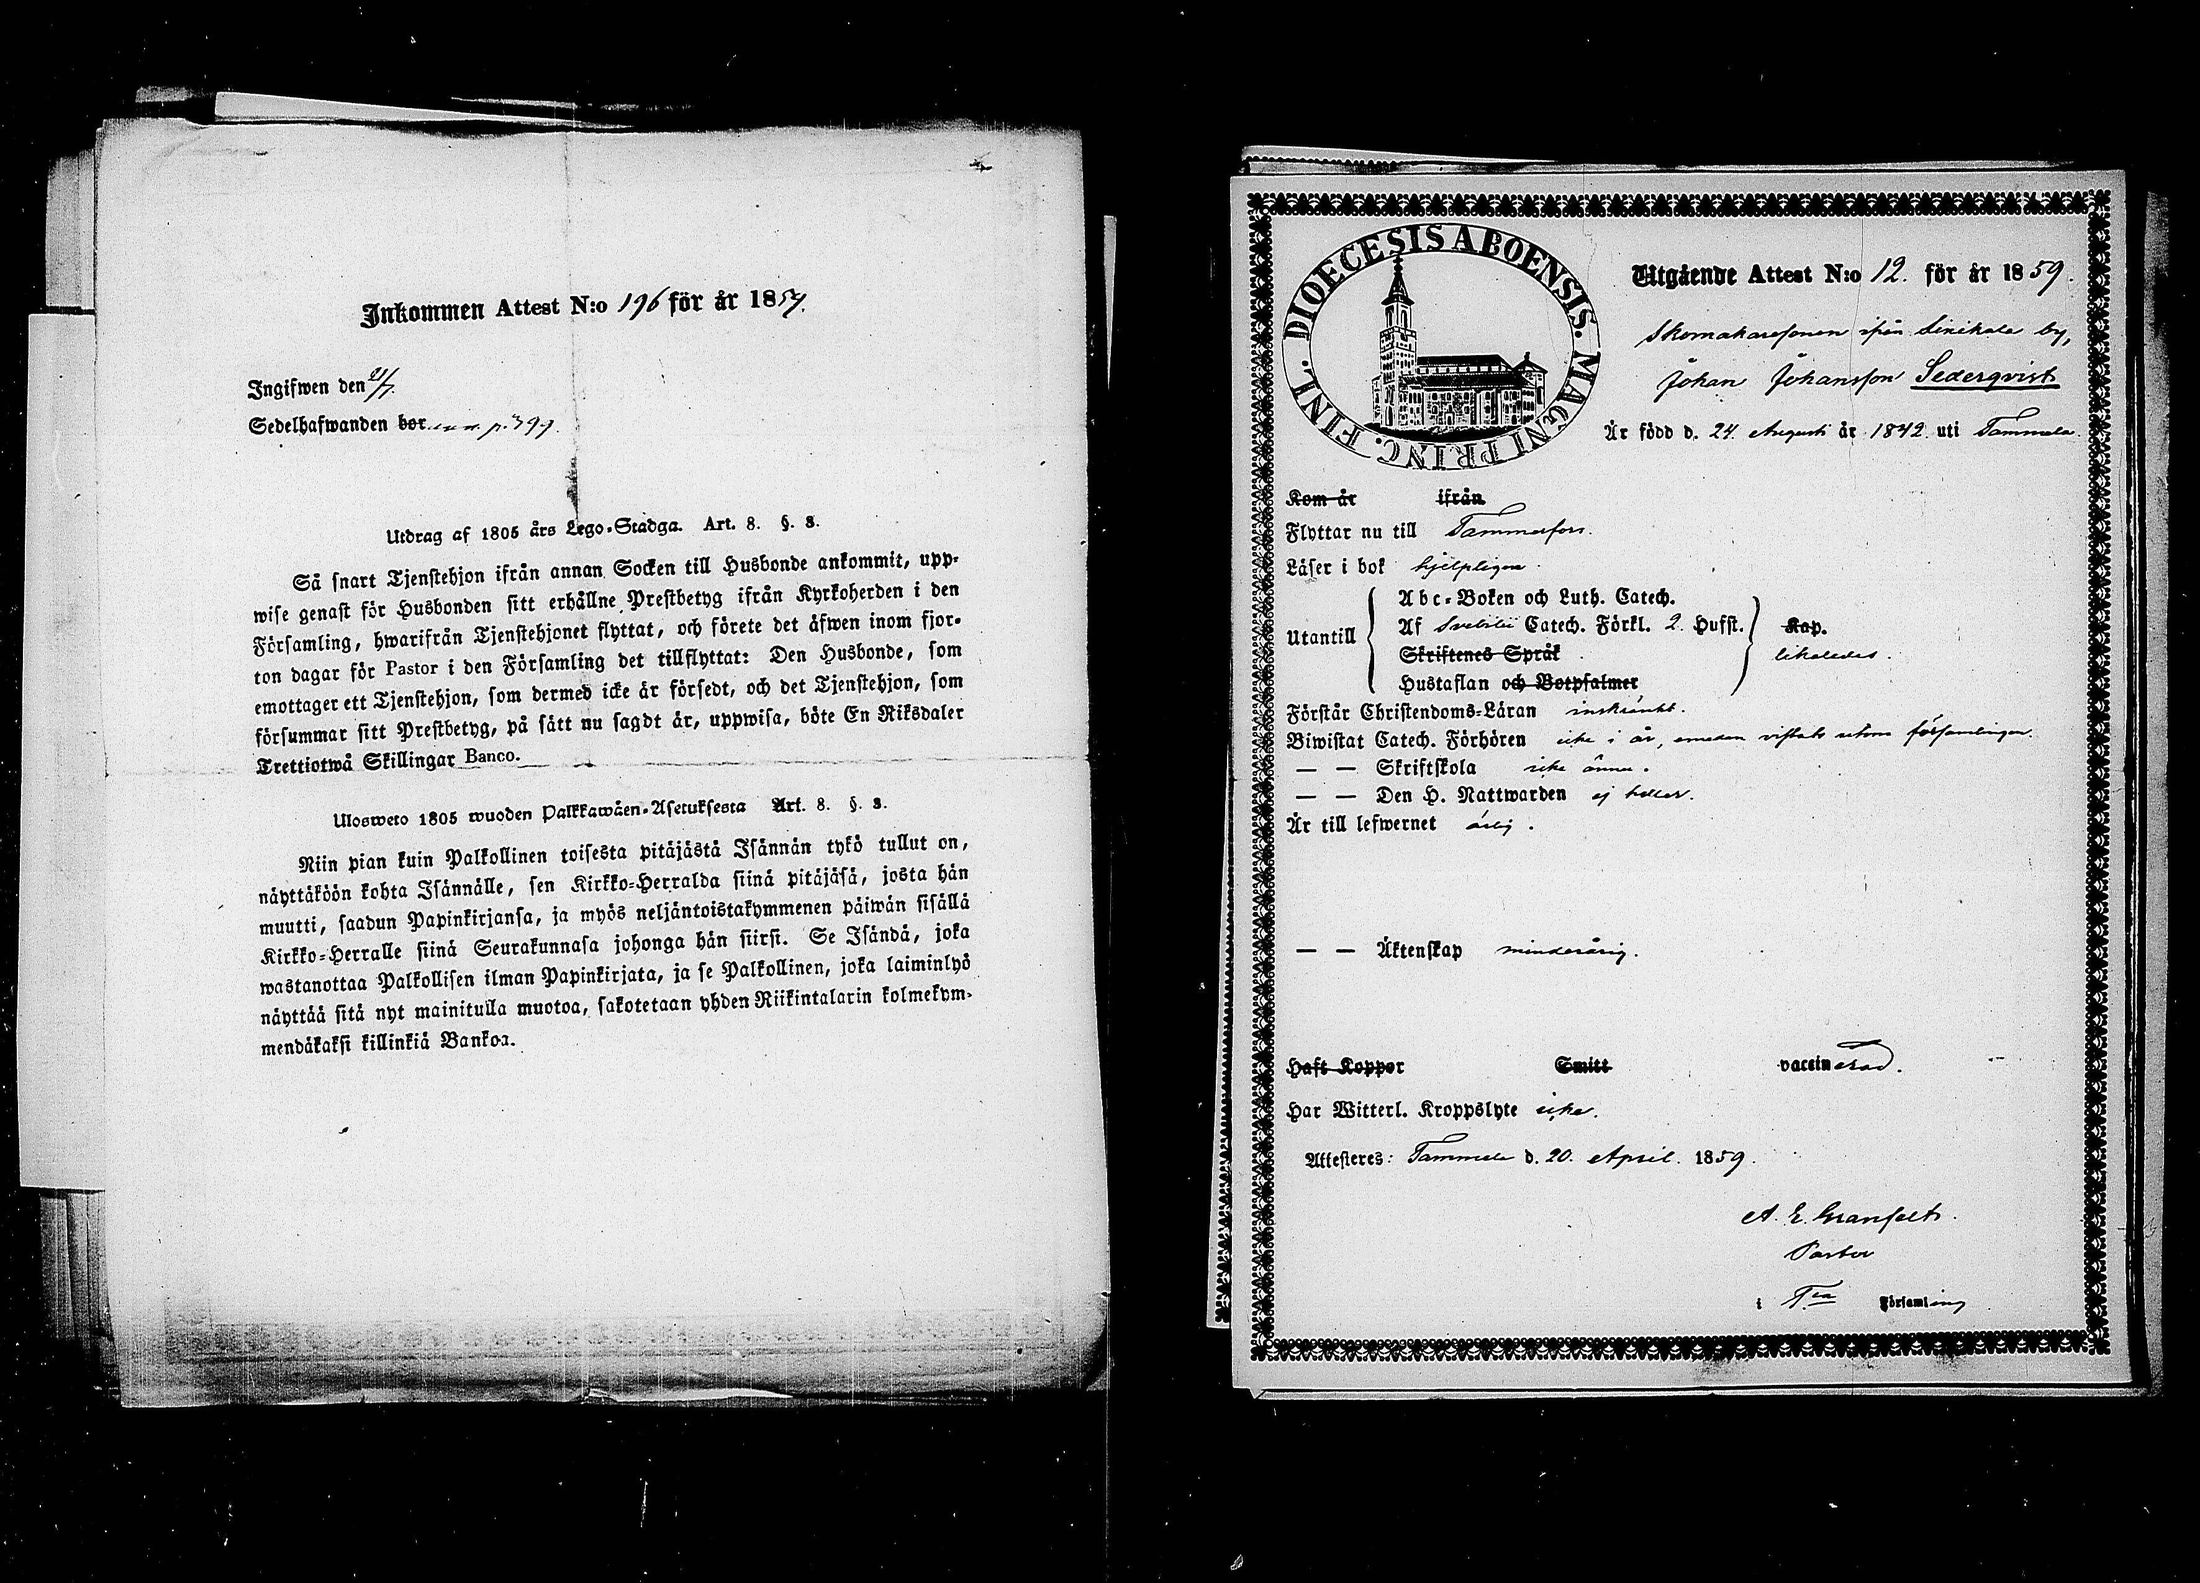 Inkommen Attest N:o 196 för år 1859.
Ingifwen den 21/7.
Sedelhafwanden bor p. 399.
Utdrag af 1805 års Lego-Stadga. Art. 8. §. 8.
Så snart Tjenstehjon ifrån annan Socken till Husbonde ankommit, upp-
wise genast för Husbonden sitt erhållne Prestbetyg ifrån Kyrkoherden i den
Församling, hwarifrån Tjenstehjonet flyttat, och förete det äfwen inom fjor-
ton dagar för Pastor i den Församling det tillflyttat: Den Husbonde, som
emottager ett Tjenstehjon, som dermed icke är försedt, och det Tjenstehjon, som
försummar sitt Prestbetyg, på sätt nu sagdt är, uppwisa, böte En Riksdaler
Trettiotwå Skillingar Banco.
Ulosweto 1805 wuoden Palkkawäen-Asetuksesta Art. 8. §. 8.
Niin pian kuin Palkollinen toisesta pitäjästä Isännän tykö tullut on,
näyttäköön kohta Isännälle, sen Kirkko-Herralda siinä pitäjäsä, josta hän
muutti, saadun Papinkirjansa, ja myös neljäntoistakymmenen päiwän sisällä
Kirkko-Herralle siinä Seurakunnasa johonga hän siirsi. Se Isändä, joka
wastanottaa Palkollisen ilman Papinkirjata, ja se Palkollinen, joka laiminlyö
näyttää sitä nyt mainitulla muotoa, sakotetaan yhden Riikintalarin kolmekym-
mendäkaksi killinkiä Bankoa.
DIOECESIS ABOENSIS. MAGNI PRINC. FINL.
Utgående Attest N:o 12. för år 1859.
Skomakaresonen ifrån Sinikala by,
Johan Johansson Sederqvist
Är född d. 24. Augusti år 1842. uti Tammela.
Kom år ifrån
Flyttar nu till Tammerfors.
Läser i bok hjelpligen.
Abc-Boken och Luth. Catech.
Utantill Af Svebilii Catech. Förkl. 2. Hufst. Kap.
Skriftenes Språk likaledes.
Hustaflan och Botpsalmer
Förstår Christendoms-Läran inskränkt.
Biwistat Catech. Förhören icke i år, emedan vistats utom församlingen.
— — Skriftskola icke ännu.
— — Den H. Nattwarden ej heller.
Är till lefwernet ärlig.
— — Äktenskap minderårig.
Haft Koppor Smitt vaccinerad.
Har Witterl. Kroppslyte icke.
Attesteres: Tammela d. 20. April. 1859.
A. E. Granfelt.
Pastor
i Församling